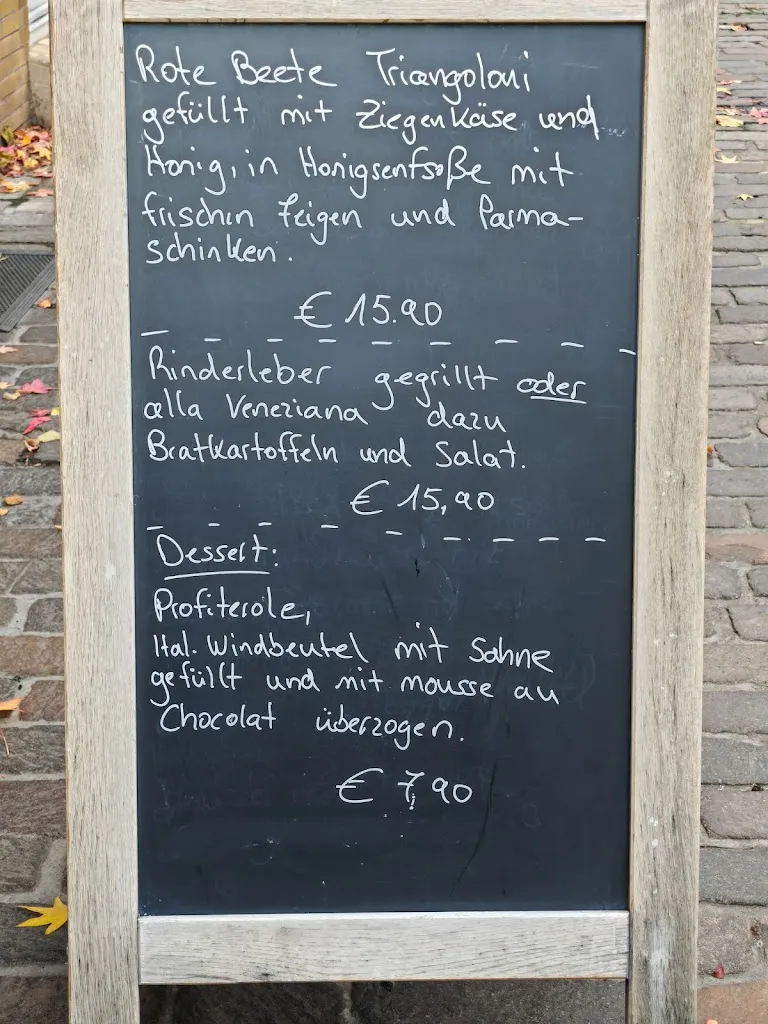 Rote Beete Triangoloni
gefüllt mit Ziegenkäse und
Honig, in Honigsenfsoße mit
frischen Feigen und Parma-
schinken.
€ 15.90
Rinderleber gegrillt oder
alla Veneziana dazu
Bratkartoffeln und Salat.
€ 15,90
Dessert:
Profiterole,
Ital. Windbeutel mit Sahne
gefüllt und mit mousse au
Chocolat überzogen.
€ 7,90